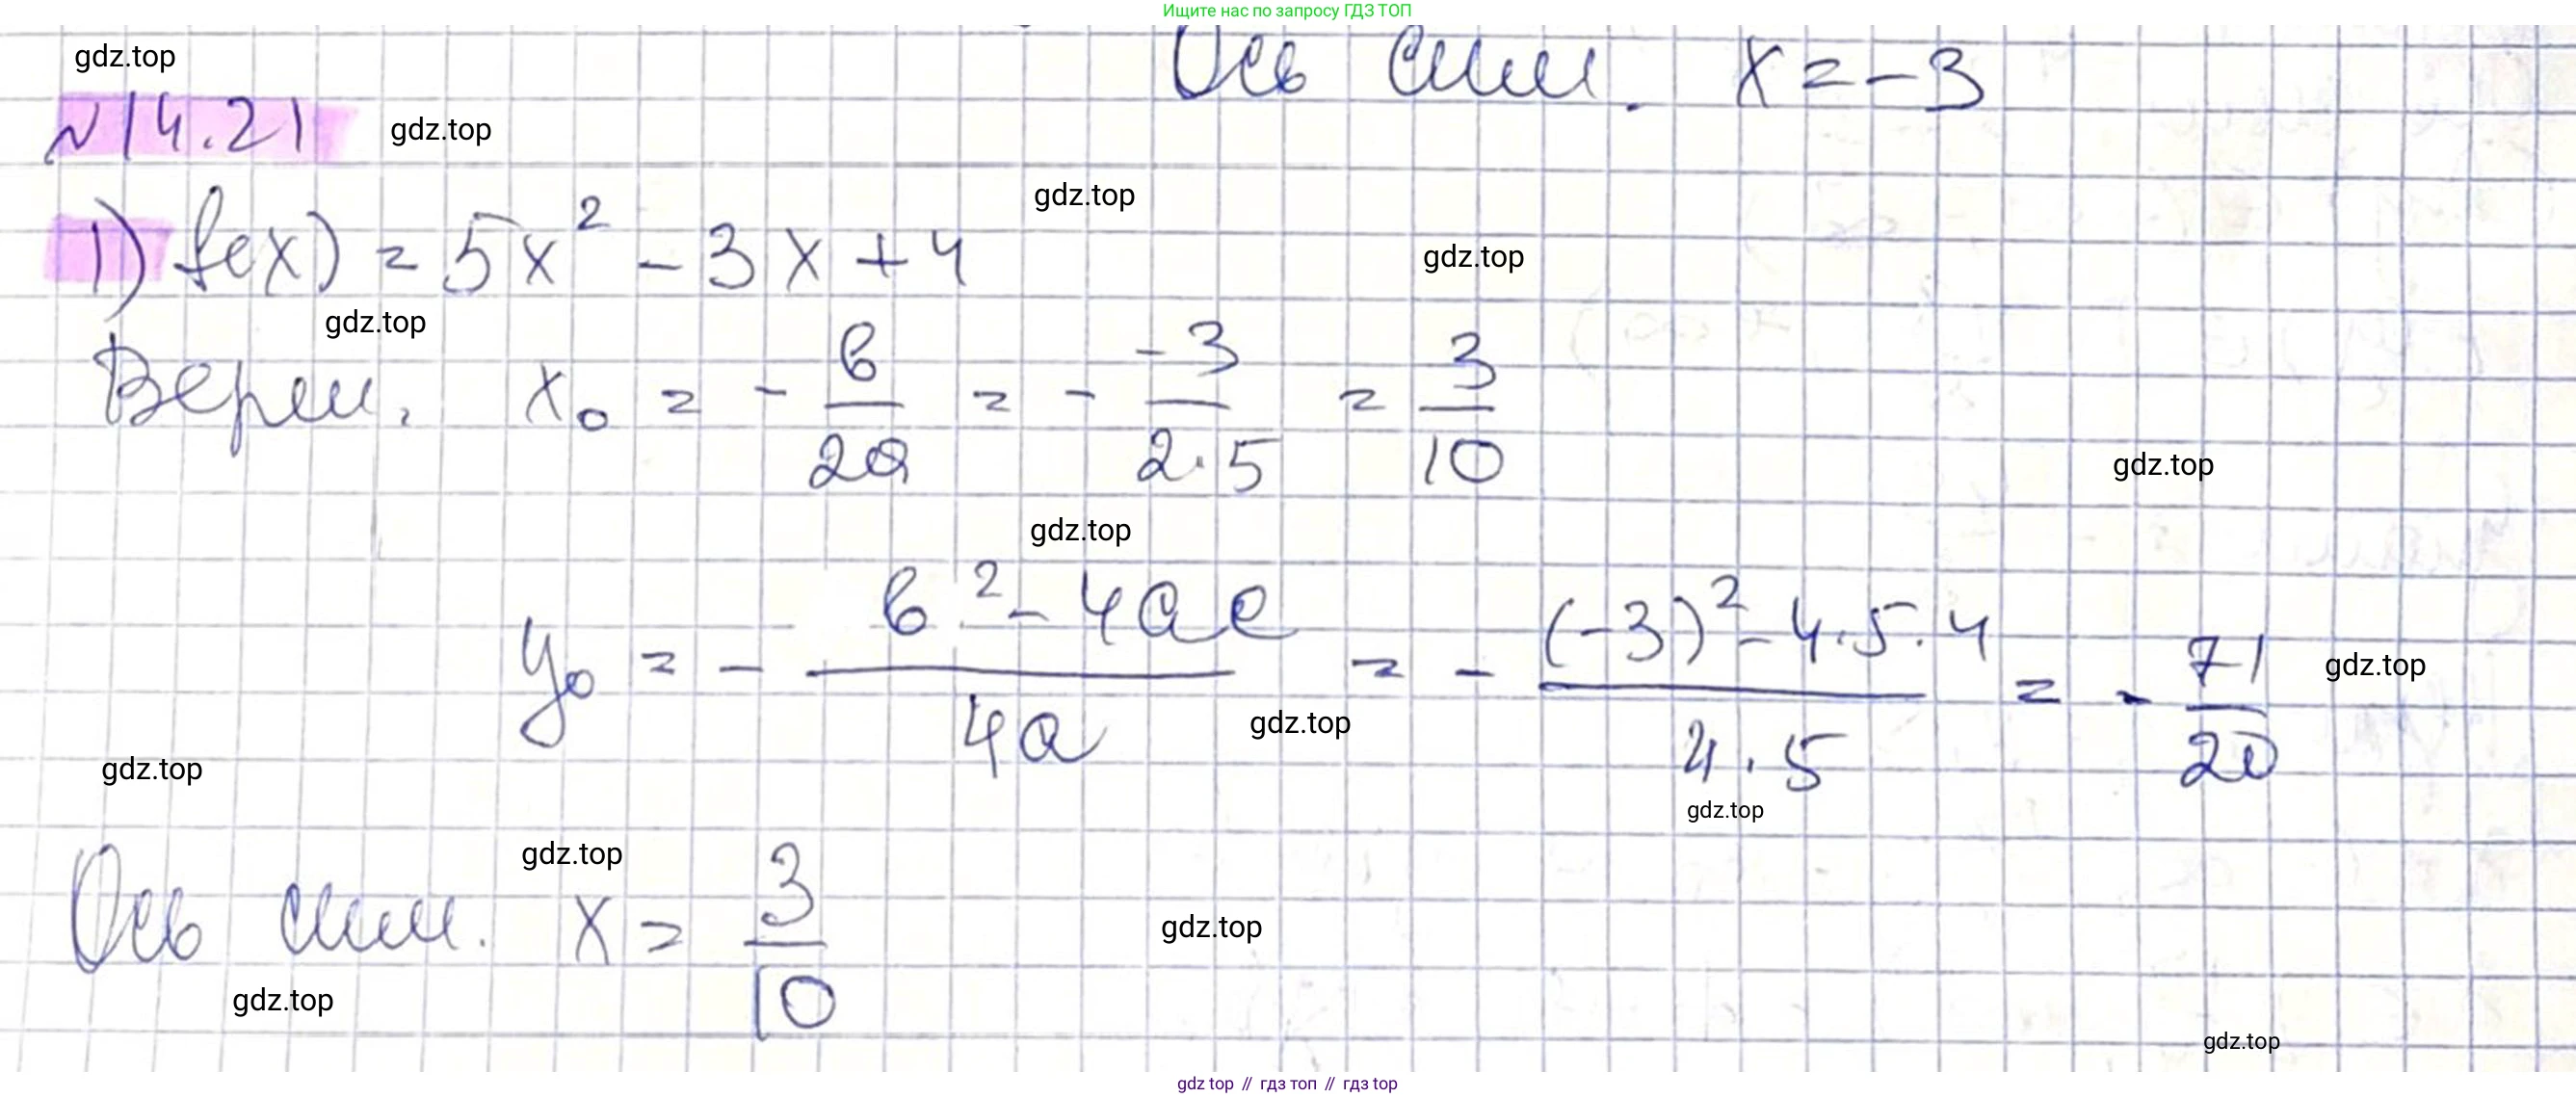 Ищите нас по запросу ГДЗ ТОП
Ось сим. x = -3
gdz.top
№14.21 gdz.top
gdz.top
1) f(x) = 5x² - 3x + 4
gdz.top
gdz.top
Верш. x₀ = - в/2a = - -3/2·5 = 3/10
gdz.top
gdz.top
y₀ = - в² - 4ac/4a = - (-3)² - 4·5·4/4·5 = - 71/20
gdz.top
gdz.top
gdz.top
gdz.top
gdz.top
Ось сим. x = 3/10
gdz.top
gdz.top
gdz.top
gdz top // гдз топ // гдз top